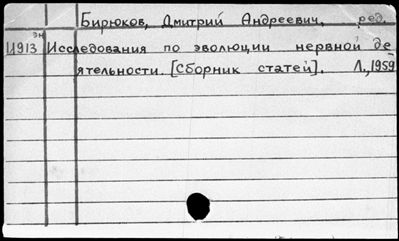 Бирюков, Дмитрий Андреевич, ред.
эн
И913 Исследования по эволюции нервной де
ятельности. [Сборник статей]. Л., 1959